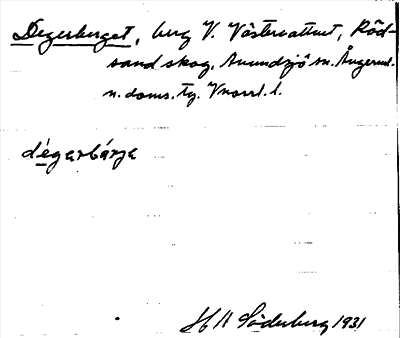 Degerberget, berg V. Västervattnet, Röd-
sand skog, Anundsjö sn. Ångerml.
n. doms. tg. Vnorrl. l.
dégarbárja
H A Söderberg 1931